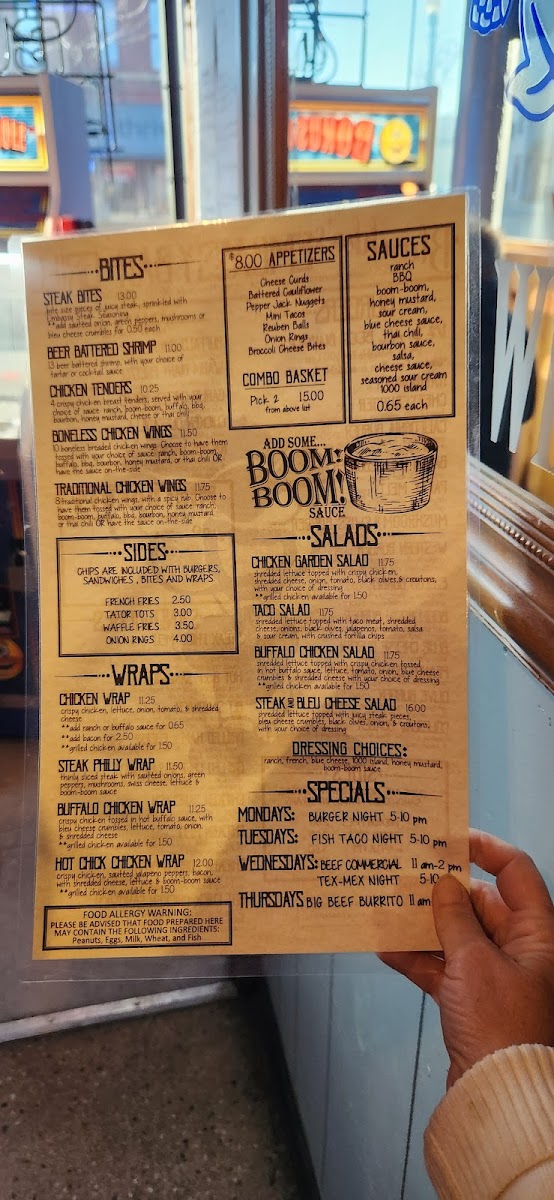 BITES
STEAK BITES 13.00
bite size pieces of juicy steak, sprinkled with
Embassy Steak Seasoning
**add sautéed onion, green peppers, mushrooms or
bleu cheese crumbles for 0.50 each
BEER BATTERED SHRIMP 11.00
13 beer battered shrimp, with your choice of
tartar or cocktail sauce
CHICKEN TENDERS 10.25
4 crispy chicken breast tenders, served with your
choice of sauce: ranch, boom-boom, buffalo, bbq,
bourbon, honey mustard, cheese or thai chili
BONELESS CHICKEN WINGS 11.50
10 boneless breaded chicken wings. Choose to have them
tossed with your choice of sauce: ranch, boom-boom,
buffalo, bbq, bourbon, honey mustard, or thai chili OR
have the sauce on-the-side
TRADITIONAL CHICKEN WINGS 11.75
8 traditional chicken wings, with a spicy rub. Choose to
have them tossed with your choice of sauce: ranch,
boom-boom, buffalo, bbq, bourbon, honey mustard,
or thai chili OR have the sauce on-the-side
SIDES
CHIPS ARE INCLUDED WITH BURGERS,
SANDWICHES, BITES AND WRAPS
FRENCH FRIES 2.50
TATOR TOTS 3.00
WAFFLE FRIES 3.50
ONION RINGS 4.00
WRAPS
CHICKEN WRAP 11.25
crispy chicken, lettuce, onion, tomato, & shredded
cheese
**add ranch or buffalo sauce for 0.65
**add bacon for 2.50
**grilled chicken available for 1.50
STEAK PHILLY WRAP 11.50
thinly sliced steak with sautéed onions, green
peppers, mushrooms, swiss cheese, lettuce &
boom-boom sauce
BUFFALO CHICKEN WRAP 11.25
crispy chicken tossed in hot buffalo sauce, with
bleu cheese crumbles, lettuce, tomato, onion,
& shredded cheese
**grilled chicken available for 1.50
HOT CHICK CHICKEN WRAP 12.00
crispy chicken, sautéed jalapeno peppers, bacon,
with shredded cheese, lettuce & boom-boom sauce
**grilled chicken available for 1.50
FOOD ALLERGY WARNING:
PLEASE BE ADVISED THAT FOOD PREPARED HERE
MAY CONTAIN THE FOLLOWING INGREDIENTS:
Peanuts, Eggs, Milk, Wheat, and Fish
$8.00 APPETIZERS
Cheese Curds
Battered Cauliflower
Pepper Jack Nuggets
Mini Tacos
Reuben Balls
Onion Rings
Broccoli Cheese Bites
COMBO BASKET
Pick 2 15.00
from above list
SAUCES
ranch
BBQ
boom-boom,
honey mustard,
sour cream,
blue cheese sauce,
thai chili,
bourbon sauce,
salsa,
cheese sauce,
seasoned sour cream
1000 island
0.65 each
ADD SOME...
BOOM!
BOOM!
SAUCE
SALADS
CHICKEN GARDEN SALAD 11.75
shredded lettuce topped with crispy chicken,
shredded cheese, onion, tomato, black olives,& croutons,
with your choice of dressing
**grilled chicken available for 1.50
TACO SALAD 11.75
shredded lettuce topped with taco meat, shredded
cheese, onions, black olives, jalapenos, tomato, salsa
& sour cream, with crushed tortilla chips
BUFFALO CHICKEN SALAD 11.75
shredded lettuce topped with crispy chicken tossed
in hot buffalo sauce, lettuce, tomato, onion, blue cheese
crumbles & shredded cheese with your choice of dressing
**grilled chicken available for 1.50
STEAK AND BLEU CHEESE SALAD 16.00
shredded lettuce topped with juicy steak pieces,
bleu cheese crumbles, black olives, onion, & croutons,
with your choice of dressing
DRESSING CHOICES:
ranch, french, blue cheese, 1000 island, honey mustard,
boom-boom sauce
SPECIALS
MONDAYS: BURGER NIGHT 5-10 pm
TUESDAYS: FISH TACO NIGHT 5-10 pm
WEDNESDAYS: BEEF COMMERCIAL 11 am-2 pm
TEX-MEX NIGHT 5-10
THURSDAYS BIG BEEF BURRITO 11 am